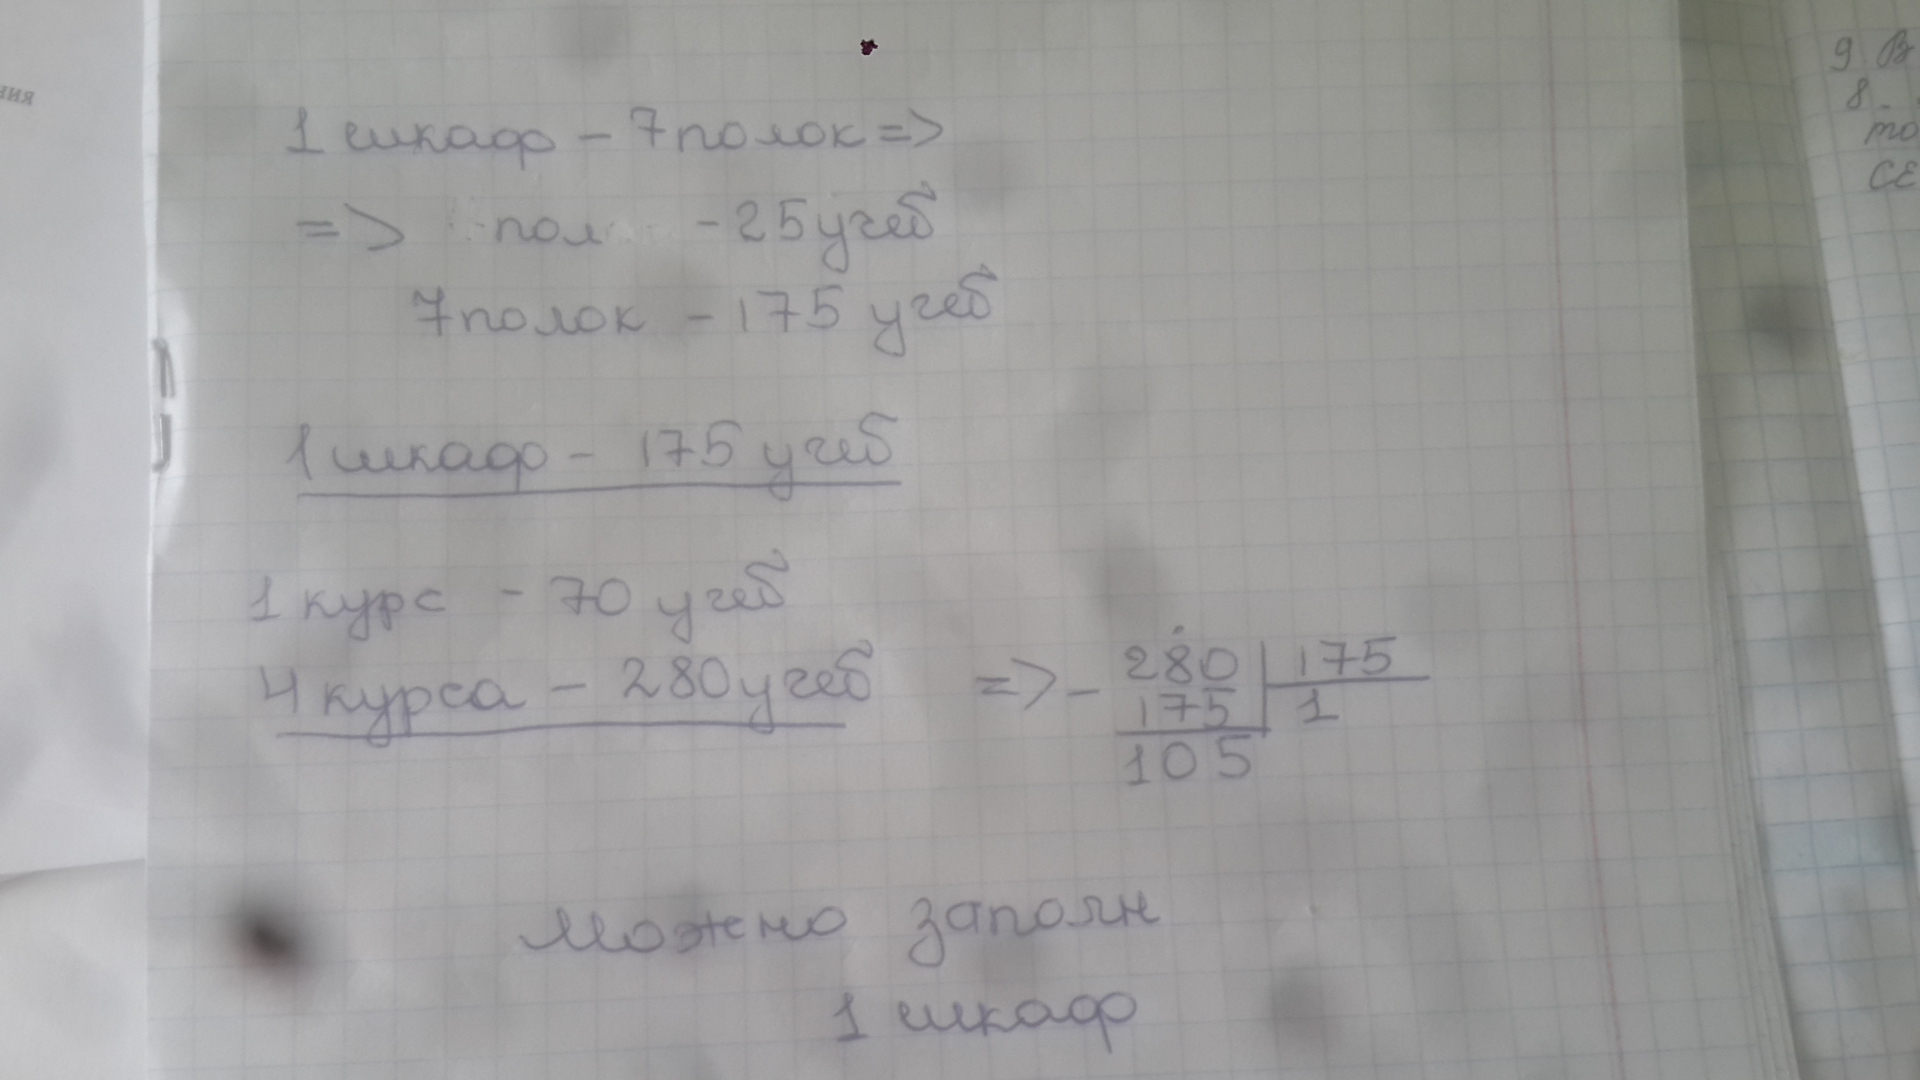 ния
1 шкаф – 7 полок =>
=> пол – 25 учеб
7 полок – 175 учеб
1 шкаф – 175 учеб
1 курс – 70 учеб
4 курса – 280 учеб => – 280 | 175
175 1
105
Можно заполн
1 шкаф
9 В
8.
то
СЕ